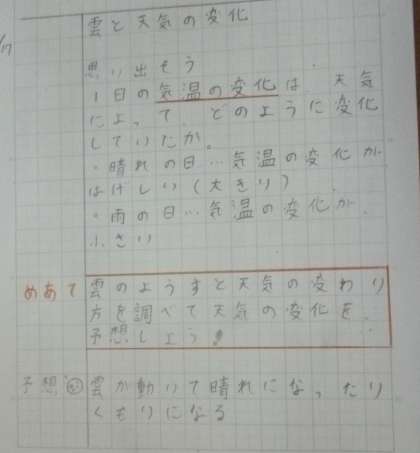 雲と天気の変化
思い出そう
1日の気温の変化は、天気
によって、どのように変化
していたか。
・晴れの日…気温の変化が
はげしい(大きい)
・雨の日…気温の変化が
小さい
めあて 雲のようすと天気の変わり
方を調べて天気の変化を
予想しよう!
予想 雲が動いて晴れになったり
くもりになる